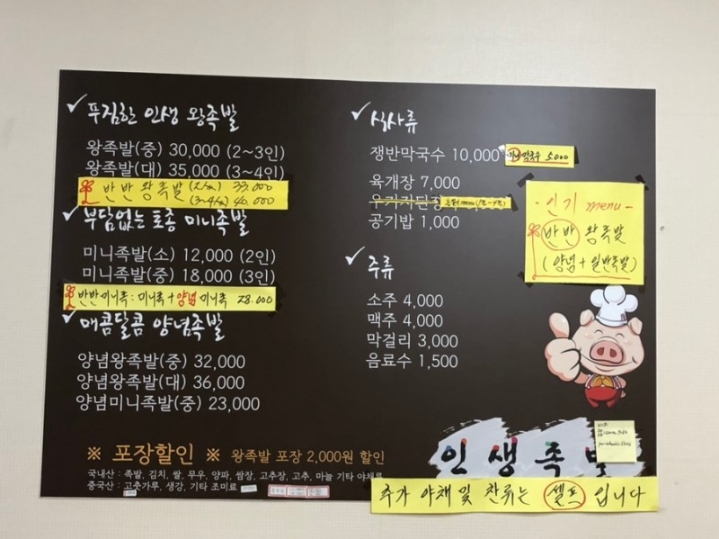 푸짐한 인생 왕족발
왕족발(중) 30,000 (2~3인)
왕족발(대) 35,000 (3~4인)
반반 왕족발 33.000
40.000
부담없는 토종 미니족발
미니족발(소) 12,000 (2인)
미니족발(중) 18,000 (3인)
반반미니족 : 미니족 + 양념 미니족 28.000
매콤달콤 양념족발
양념왕족발(중) 32,000
양념왕족발(대) 36,000
양념미니족발(중) 23,000
※ 포장할인 ※ 왕족발 포장 2,000원 할인
국내산 : 족발, 김치, 쌀, 무우, 양파, 쌈장, 고추장, 고추, 마늘 기타 야채류
중국산 : 고춧가루, 생강, 기타 조미료
식사류
쟁반막국수 10,000 막국수 5.000
육개장 7,000
공기밥 1,000
주류
소주 4,000
맥주 4,000
막걸리 3,000
음료수 1,500
- 인기 menu -
반반 왕족발
(양념 + 일반족발)
인생족발
추가 야채 및 찬류는 셀프 입니다